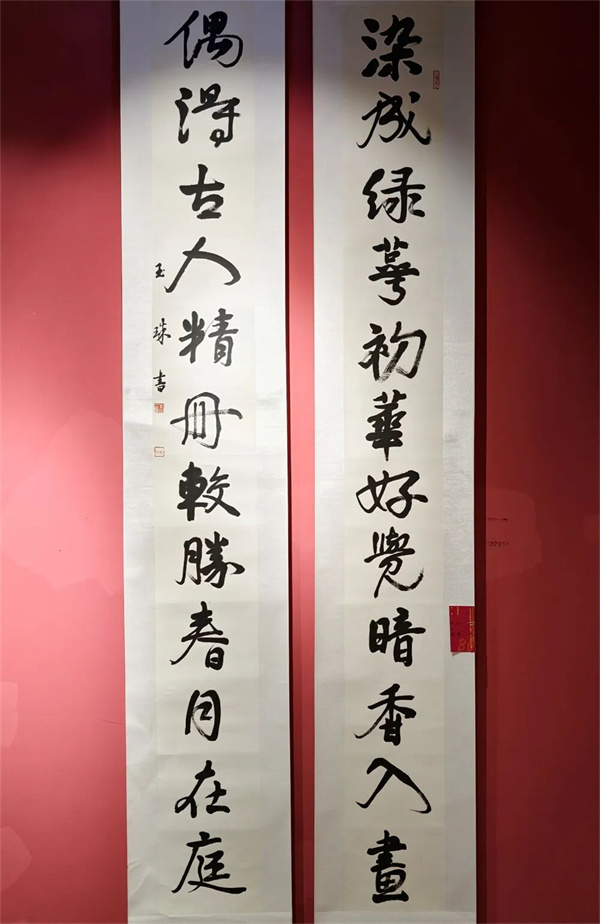 染成绿萼初華好覺暗香入畫
偶得古人精冊較勝春月在庭
玉珠書